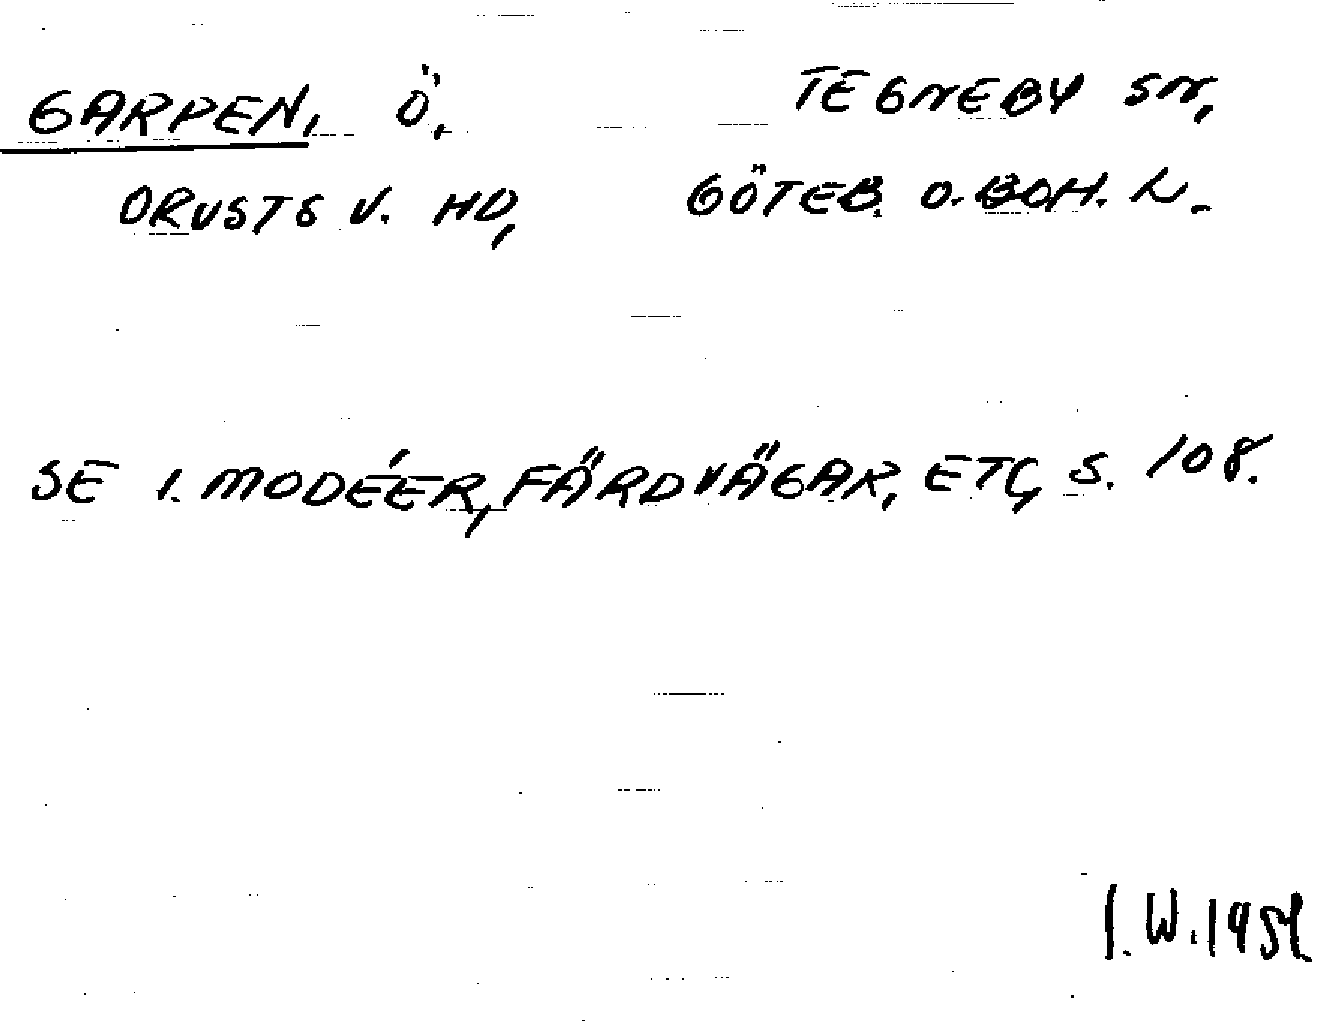 GARPEN, Ö, TEGNEBY SN,
ORUSTS V. HD, GÖTEB. O. BOH. L.
SE I. MODÉER, FÄRDVÄGAR, ETC, S. 108.
I. W.